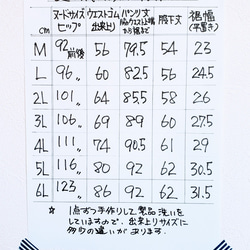 cm ヌードサイズ ヒップ ウエストゴム 出来上り パンツ丈 脇下丈 裾幅 (平置き)
M 92前後 56 79.5 54 23
L 96〃 60 82.5 56 24.5
2L 101〃 64 85.5 58 26
3L 106〃 69 89 60 27.5
4L 111〃 74 90.5 61 29
5L 116〃 80 92 62 30.5
6L 123〃 86 92 62 31.5
☆ 1点ずつ手作りして製品洗いを
していますので、出来上りサイズに
多少の違いがあります。